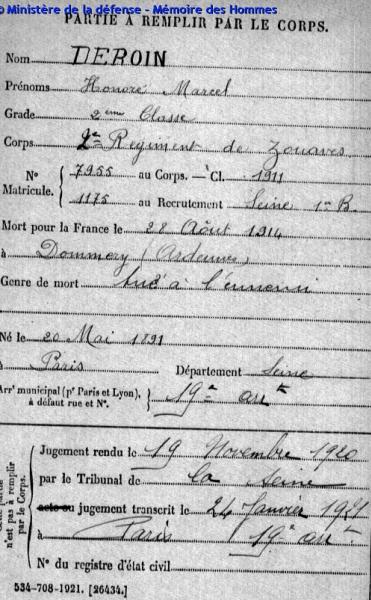 © Ministère de la défense - Mémoire des Hommes
PARTIE À REMPLIR PAR LE CORPS.
Nom DEROIN
Prénoms Honoré Marcel
Grade 2ème Classe
Corps 2e Régiment de Zouaves
N° Matricule. { 7955 au Corps. — Cl. 1911
1175 au Recrutement Seine 1er B.
Mort pour la France le 28 Août 1914
à Dommery (Ardennes)
Genre de mort tué à l'ennemi
Né le 20 Mai 1891
à Paris Département Seine
Arrt municipal (pr Paris et Lyon), à défaut rue et N°. } 19e arrt
Jugement rendu le 19 Novembre 1920
par le Tribunal de la Seine
acte ou jugement transcrit le 24 Janvier 1921
à Paris 19e arrt
N° du registre d'état civil
n'est pas à remplir par le Corps.
534-708-1921. [26434.]